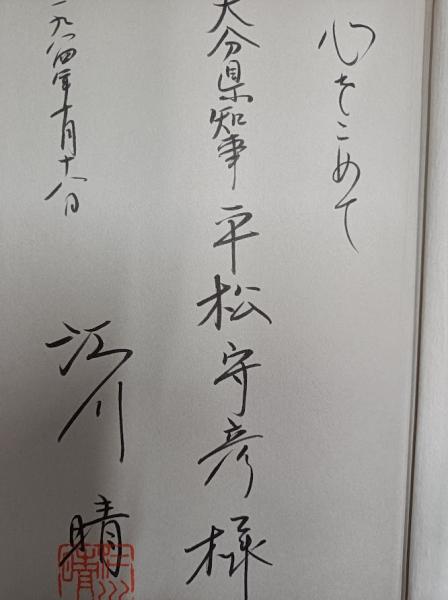 心をこめて
大分県知事 平松守彦様
一九八四年十月十八日
江川 晴
江川晴